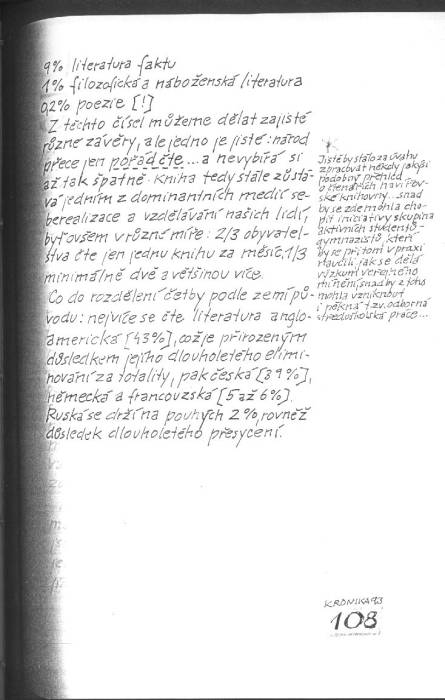 9% literatura faktu
1% filozofická a náboženská literatura
0,2% poezie [!]
Z těchto čísel můžeme dělat zajisté
různé závěry, ale jedno je jisté: národ
přece jen pořád čte... a nevybírá si
až tak špatně. Kniha tedy stále zůstá-
vá jedním z dominantních medií se-
berealizace a vzdělávání našich lidí,
byť ovšem v různé míře: 2/3 obyvatel-
stva čte jen jednu knihu za měsíc, 1/3
minimálně dvě a většinou více.
Co do rozdělení četby podle zemí pů-
vodu: nejvíce se čte literatura anglo-
americká [43%], což je přirozeným
důsledkem jejího dlouholetého elimi-
nování za totality, pak česká [39%],
německá a francouzská [5 až 6%].
Ruská se drží na pouhých 2%, rovněž
důsledek dlouholetého přesycení.
Jistě by stálo za úvahu
zpracovat někdy jakýsi
podobný přehled
o čtenářích havířov-
ské knihovny... snad
by se zde mohla cho-
pit iniciativy skupina
aktivních studentů-
gymnazistů, kteří
by se přitom v praxi
naučili jak se dělá
výzkum veřejného
mínění, snad by z toho
mohla vzniknout
i pěkná tzv. odborná
středoškolská práce...
KRONIKA 93
108